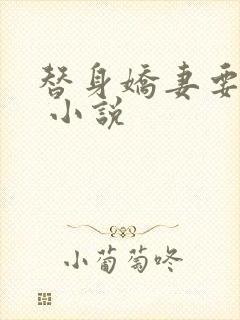 替身嬌妻要
小說
小葡萄咚